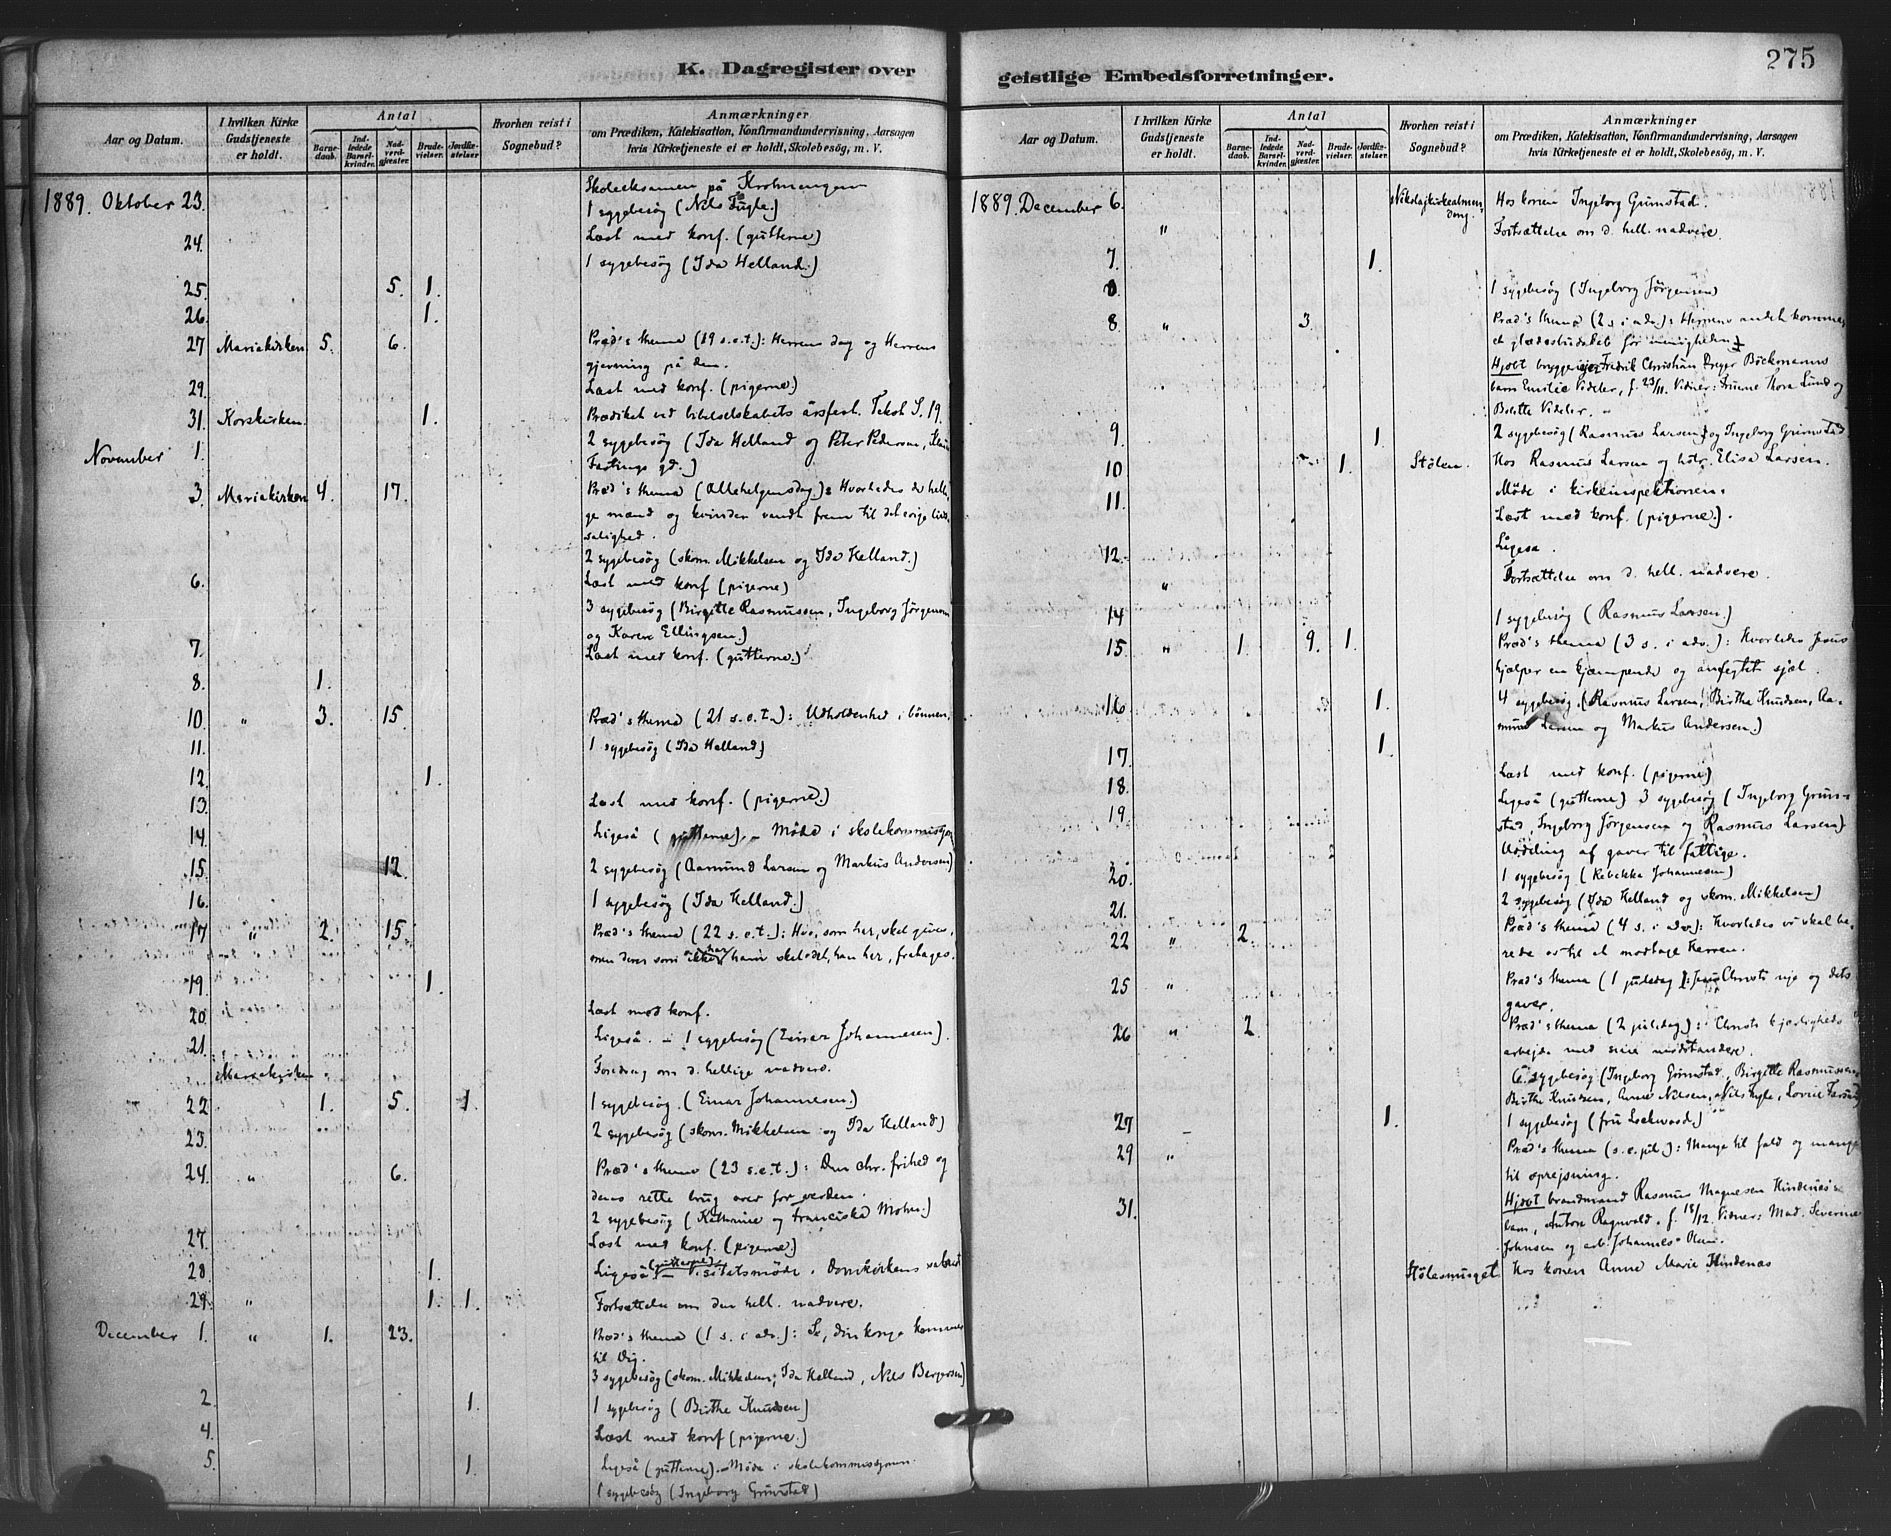 275
K. Dagregister over
geistlige Embedsforretninger.
Aar og Datum.
I hvilken Kirke Gudstjeneste er holdt.
Antal
Barnedaab.
Indledede Barselkvinder.
Nadverdgjester.
Brudevielser.
Jordfæstelser
Hvorhen reist i Sognebud?
Anmærkninger
om Prædiken, Katekisation, Konfirmandundervisning, Aarsagen
hvis Kirketjeneste ei er holdt, Skolebesøg, m. V.
1889. Oktober 23. Skoleeksamen på
1 sygebesög (Nils Fugle.)
24. Læst med konf. (gutterne)
1 sygebesög (Ida Helland.)
25. 5. 1.
26. 1.
27 Mariakirken 5. 6. Præd's thema (19 s.e.t.): Herrens dag og Herrens
gjerning på den.
29. Læst med konf. (pigerne)
31. Korskirken. 1. Prædiket ved bibelselskabets årsfest. Tekst S. 19.
November 1. 2 sygebesög (Ida Helland og Peter Pedersen,
Fastings gd.)
3. Mariakirken 4. 17. Præd's thema (Allehelgensdag.): Hvorledes de helli-
ge mænd og kvinder vandt frem til det evige livs
salighed.
2 sygebesög (skom. Mikkelsen og Ida Helland.)
6. Læst med konf (pigerne)
3 sygebesög (Birgitte Rasmussen, Ingeborg Jörgensen
og Karen Ellingsen.)
7. Læst med konf. (gutterne.)
8. 1.
10. " 3. 15. Præd's thema (21 s.e.t.): Udholdenhed i bönnen.
11. 1 sygebesög (Ida Helland)
12. 1.
13. Læst med konf. (pigerne.)
14. Ligeså (gutterne). – Möde i skolekommissjon
15. 12. 2 sygebesög (Aamund Larsen og Markus Andersen)
16. 1 sygebesög (Ida Helland.)
17 " 2. 15. Præd's thema (22 s.e.t.): Hvo, som har, skal gives,
men den som ikke har, ham skal det, han har, fratages.
19. 1.
20. Læst med konf.
21. Ligeså. – 1 sygebesög (Einar Johannesen).
Mariakirken Foredrag om d. hellige nadvere.
22 1. 5. 1. 1 sygebesög. (Einar Johannesen.)
23. 2 sygebesög (skom. Mikkelsen og Ida Helland)
24 " 6. Præd's thema (23 s.e.t.): Den chr. frihed og
dens rette brug over for verden.
2 sygebesög (Kathrine og Franciska Mohn.)
27. Læst med konf. (pigerne.)
28 1. Ligeså (gutterne) – Visitatsmöde i Domkirkens
29. " 1. 1. Fortsættelse om den hell. nadvere.
December 1. " 1. 23. Præd's thema (1 s. i adv.): Se, din konge kommer
til dig.
3 sygebesög (skom. Mikkelsen, Ida Helland, Nils Bergersen)
2. 1. 1 sygebesög (Birthe Knudsen)
4. Læst med konf (pigerne.)
5. 1. Ligeså (gutterne). – Möde i skolekommissjonen.
1 sygebesög (Ingeborg Grimstad)
Aar og Datum.
I hvilken Kirke Gudstjeneste er holdt.
Antal
Barnedaab.
Indledede Barselkvinder.
Nadverdgjester.
Brudevielser.
Jordfæstelser.
Hvorhen reist i Sognebud?
Anmærkninger
om Prædiken, Katekisation, Konfirmandundervisning, Aarsagen
hvis Kirketjeneste ei er holdt, Skolebesøg, m. V.
1889. December 6. Nikolajkirkealmenning. Hos konen Ingeborg Grimstad.
" Fortsættelse om d. hell. nadvere.
7. 1.
1 sygebesög (Ingeborg Jörgensen)
8 " 3. Præd's thema (2 s. i adv.): Herrens andet komme,
et glædesbudskab for menigheden.
Hjdbt bryggeriejer Fredrik Christian Dreyer Böckmanns
barn Emilie Videler, f. 23/11. Vidner: fruerne Nora Lund og
Bolette Videler.
9. 1. 2 sygebesög (Rasmus Larsen og Ingeborg Grimstad
10 1. Stölen. Hos Rasmus Larsen og hstr. Elisa Larsen.
11. Möde i kirkeinspektionen.
Læst med konf. (pigerne).
12. Ligesa.
" Fortsættelse om d. hell. nadvere.
14 1 sygebesög (Rasmus Larsen.)
15. " 1. 9. 1. Præd's thema (3 s. i adv.): Hvorledes Jesus
hjælper en kjæmpende og anfegtet sjæl.
16. 1. 4 sygebesög. (Rasmus Larsen, Birthe Knudsen, Aa-
mund Larsen og Markus Andersen.)
17. 1.
18. Læst med konf. (pigerne)
19 Ligeså (gutterne) 3 sygebesög (Ingeborg Grim-
stad, Ingeborg Jörgensen og Rasmus Larsen)
Uddeling af gaver til fattige.
20. 1 sygebesög (Rebekka Johannesen)
21. 2 sygebesög (Ida Helland og skom. Mikkelsen)
22 " 2. Præd's thema (4 s. i adv.): Hvorledes vi skal be-
rede os til at modtage Herren.
25 " Præd's thema (1 juledag): Jesu Christi rige og dets
gaver.
26 " 2. Præd's thema (2 juledag): Christi kjærligheds
arbejde med sine modstandere.
6 sygebesög (Ingeborg Grimstad, Birgitte Rasmussen,
Birthe Knudsen, Anne Nilsen, Nils Fugle,
27 1. 1 sygebesög (fru Lockwood.)
29 " Præd's thema (s. e. jul.): Mange til fald og mange
til oprejsning.
31. Hjdbt brandmand Rasmus Magnesen Hindenæs's
barn, Antore Ragnvald. f. 18/12. Vidner: Mad. Severine
Johnsen og arb. Johannes Olsen.
Stölesmuget. Hos konen Anne Marie Hindenæs